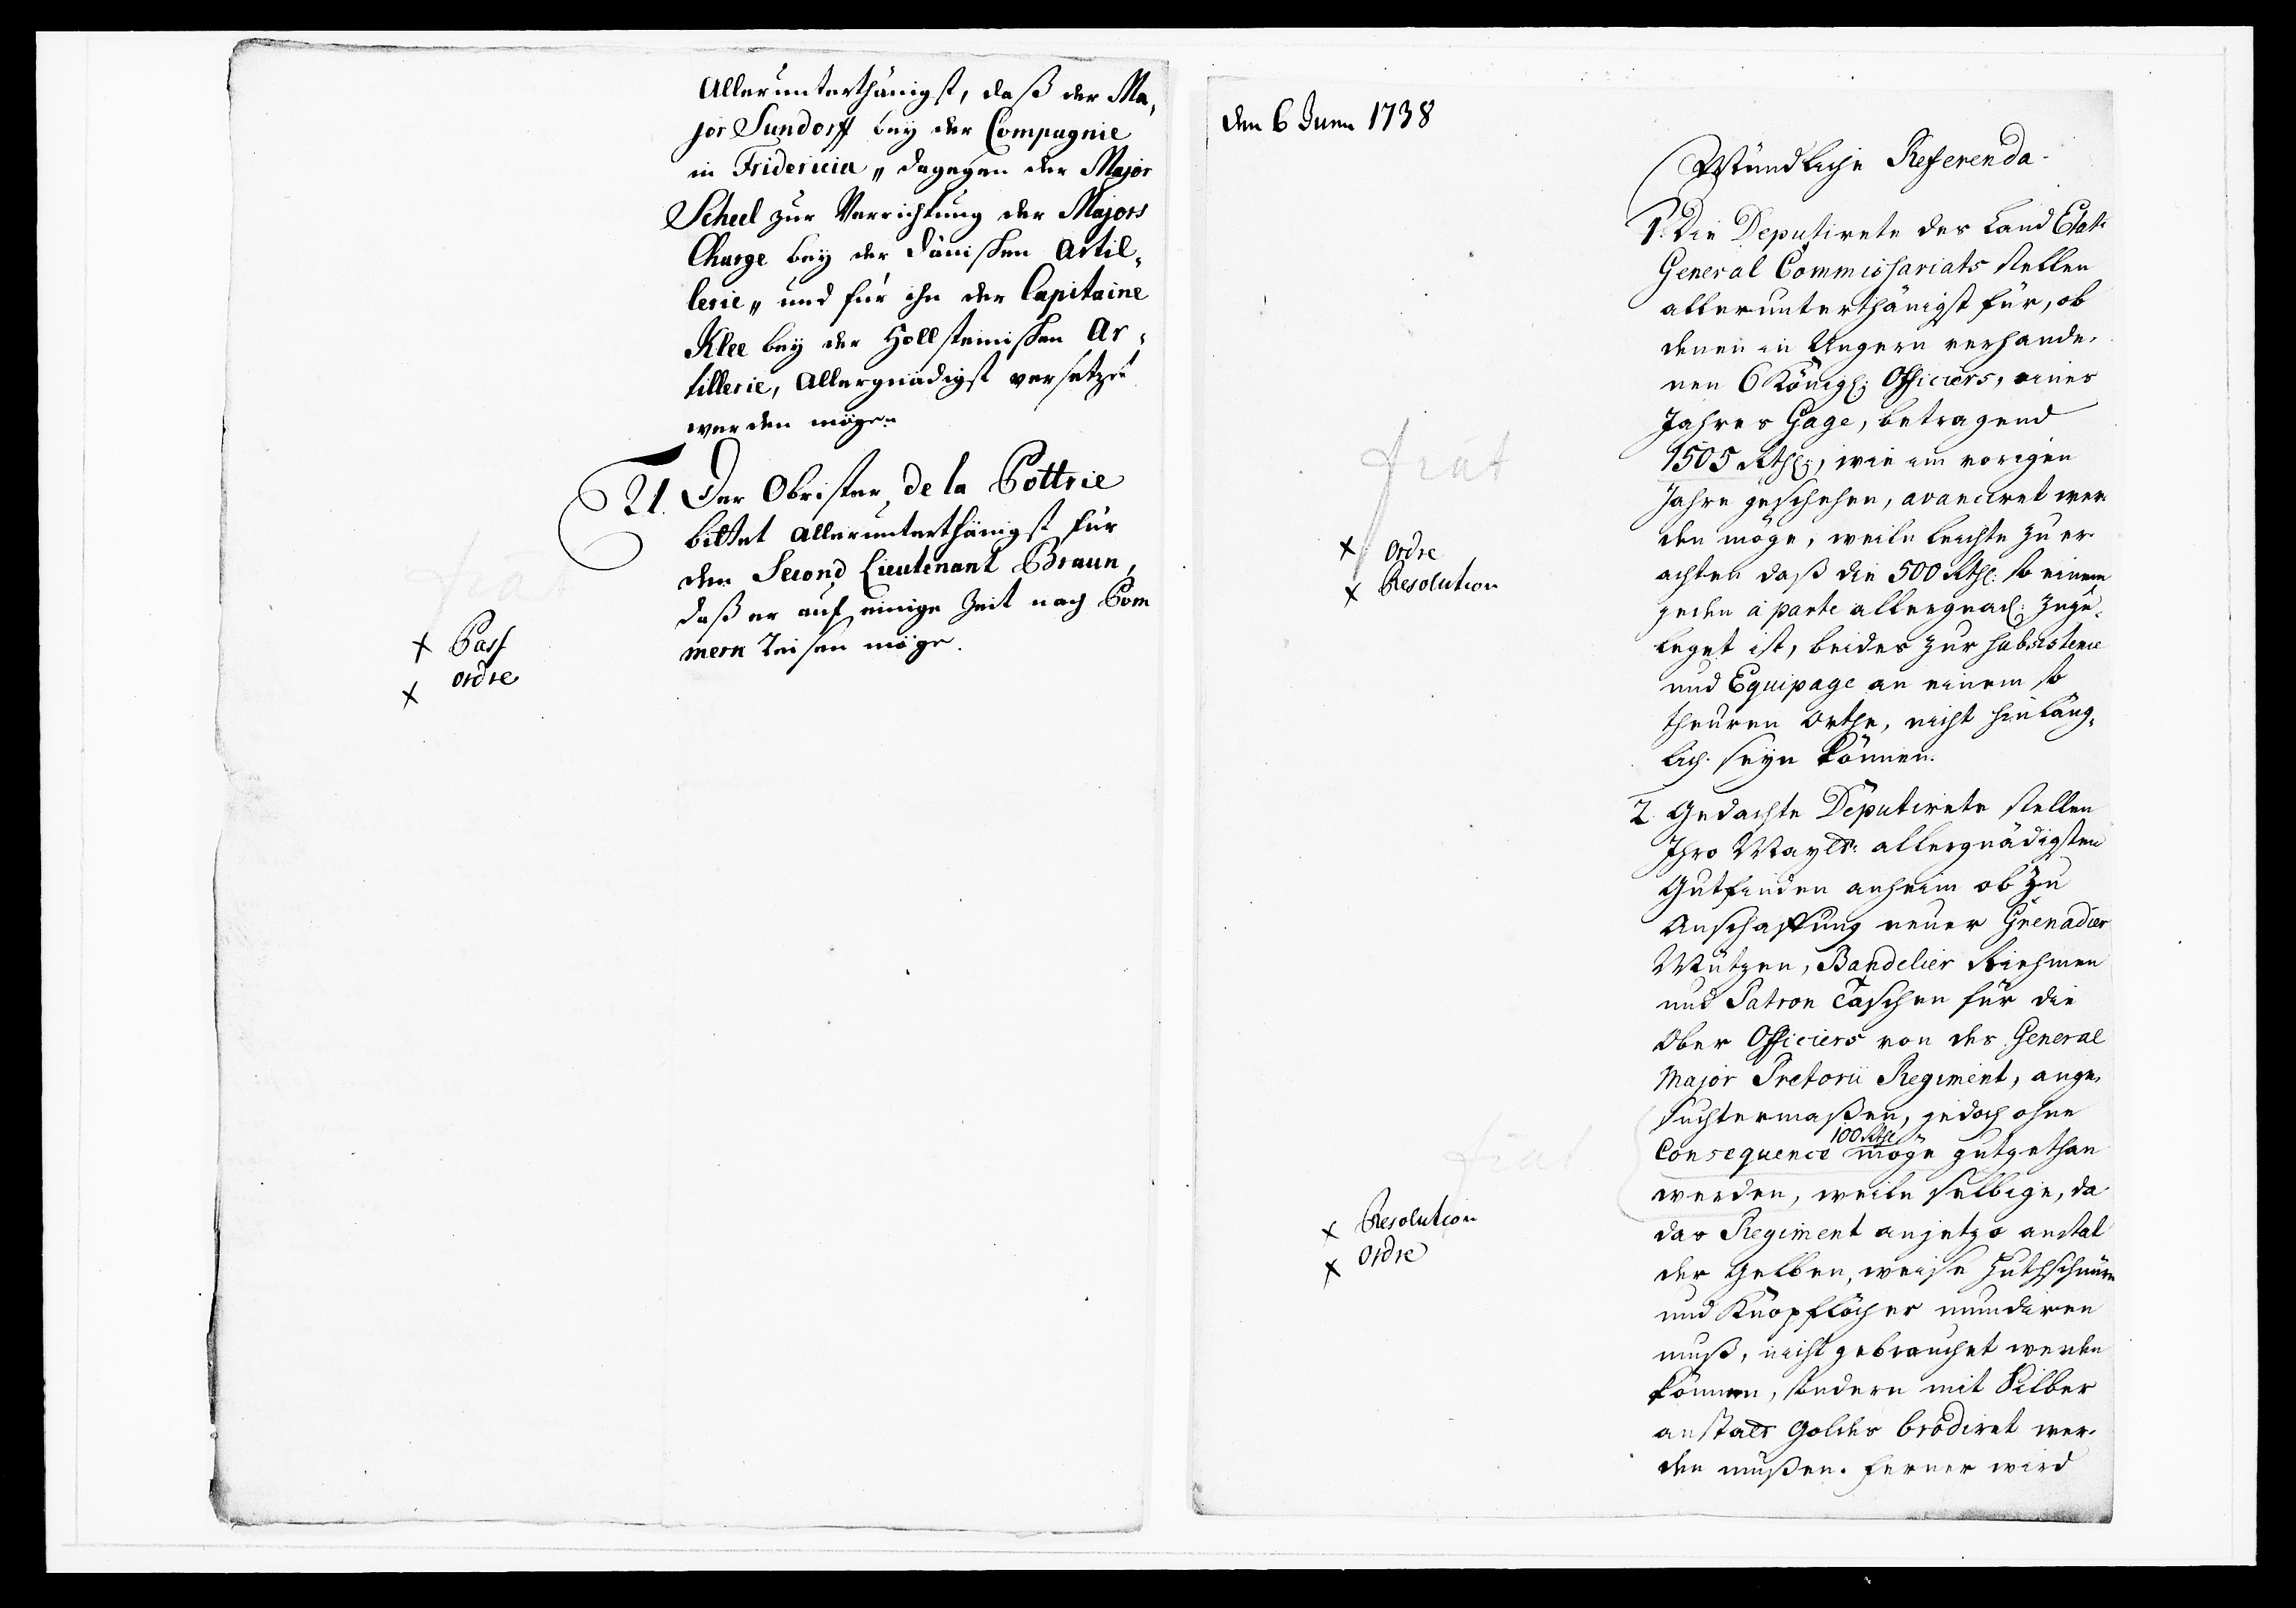 Allerunterthänigst, daß der Ma,
jor Sundorff bey der Compagnie
in Fridericia „ dagegen der Major
Scheel zur Verrichtung der Majors
Charge bey der dänischen Artil,
lerie „ und für ihn der Capitaine
Klee bey der Hollsteinischen Ar,
tillerie, Allergnädigst versetzet
werden mögen
21. Der Obrister de la Pottrie
bittet Allerunterthänigst für
den Second Lieutenant Braun,
daß er auf einige Zeit nach Pom
mern reisen möge.
fiat
x Pass
x ordre
den 6 Juny 1738
Mündliche Referenda
1. Die Deputirete des Land Etats
General Commissariats stellen
allerunterthänigst für, ob
denen in Ungern verhande,
nen 6 Königl: Officiers, eines
Jahres Gage, betragend
1505 Rthl:, wie im vorigen
Jahre geschehen, avanciret wer
den möge, weile leichte zu er
achten daß die 500 Rthl: so einem
jeden à parte allergnäd: zuge,
leget ist, beides zur subsistence
und Equipage an einem so
theuren Orthe, nicht hinläng,
lich seyn können.
fiat
x ordre
x Resolution
2. Gedachte Deputirete stellen
Ihro Mayltt: allergnädigsten
Gutfinden anheim ob zu
Anschaffung neuer Grenadier
Mützen, Bandelier Riehmen
und Patron Taschen für die
Ober Officiers von des General
Major Pretorii Regiment, ange,
suchtermaßen, jedoch ohne
Consequence 100 Rthl möge gutgethan
werden, weile selbige, da
das Regiment anjetzo anstat
der Gelben, weiße Huthschnüre
und Knopflöcher mundiren
muß, nicht gebrauchet werden
können, sondern mit Silber
anstatt Goldes brodiret wer
den mußen. Ferner wird
fiat
x Resolution
x ordre